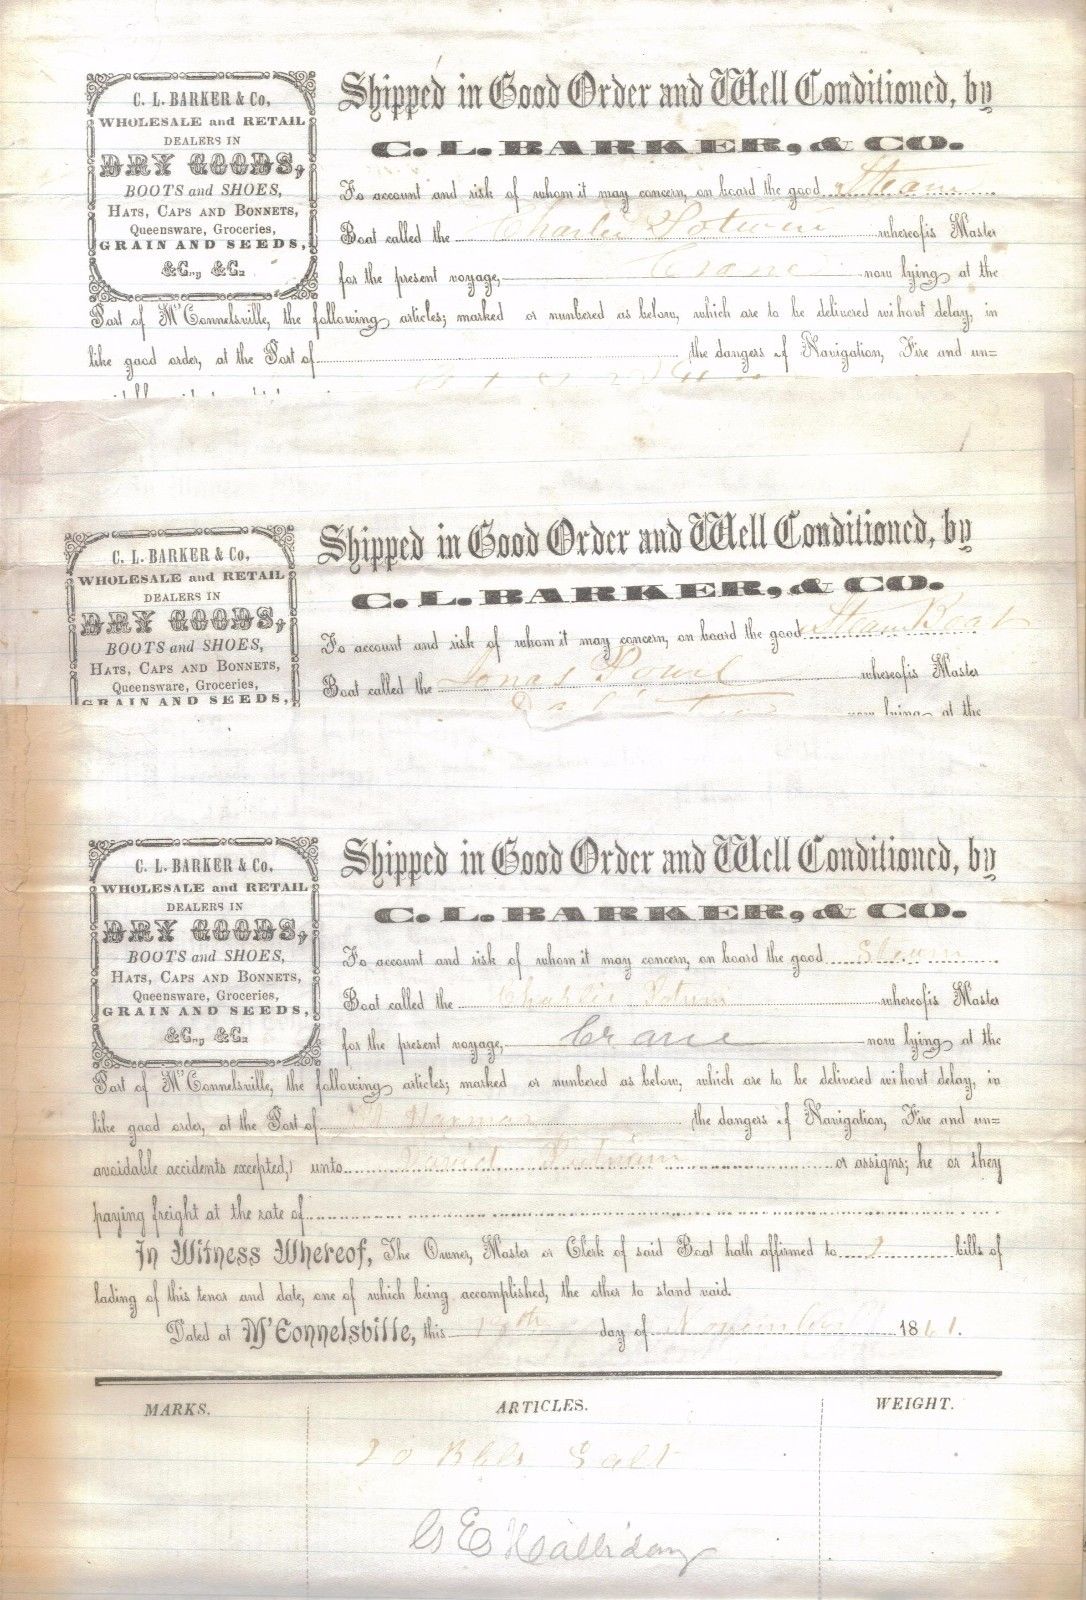 C. L. BARKER & Co.
WHOLESALE and RETAIL
DEALERS IN
DRY GOODS,
BOOTS and SHOES,
HATS, CAPS AND BONNETS,
Queensware, Groceries,
GRAIN AND SEEDS,
&C., &C.
Shipped in Good Order and Well Conditioned, by
C. L. BARKER, & CO.
To account and risk of whom it may concern, on board the good Steam
Boat called the Charlie Potwin whereofis Master
for the present voyage, Crane now lying at the
Port of M'Connelsville, the following articles; marked or numbered as below, which are to be delivered wihout delay, in
like good order, at the Port of the dangers of Navigation, Fire and un=
C. L. BARKER & Co.
WHOLESALE and RETAIL
DEALERS IN
DRY GOODS,
BOOTS and SHOES,
HATS, CAPS AND BONNETS,
Queensware, Groceries,
GRAIN AND SEEDS,
Shipped in Good Order and Well Conditioned, by
C. L. BARKER, & CO.
To account and risk of whom it may concern, on board the good Steam Boat
Boat called the Jonas Powel whereofis Master
now lying at the
C. L. BARKER & Co.
WHOLESALE and RETAIL
DEALERS IN
DRY GOODS,
BOOTS and SHOES,
HATS, CAPS AND BONNETS,
Queensware, Groceries,
GRAIN AND SEEDS,
&C., &C.
Shipped in Good Order and Well Conditioned, by
C. L. BARKER, & CO.
To account and risk of whom it may concern, on board the good
Boat called the Charlie whereofis Master
for the present voyage, Crane now lying at the
Port of M'Connelsville, the following articles; marked or numbered as below, which are to be delivered wihout delay, in
like good order, at the Port of Harmar the dangers of Navigation, Fire and un=
avoidable accidents excepted,) unto David Putnam or assigns; he or they
paying freight at the rate of
In Witness Whereof, The Owner, Master or Clerk of said Boat hath affirmed to 2 bills of
lading of this tenor and date, one of which being accomplished, the other to stand void.
Dated at M'Connelsville, this day of November 1861.
MARKS. ARTICLES. WEIGHT.
20 Bbls Salt
G E Halliday